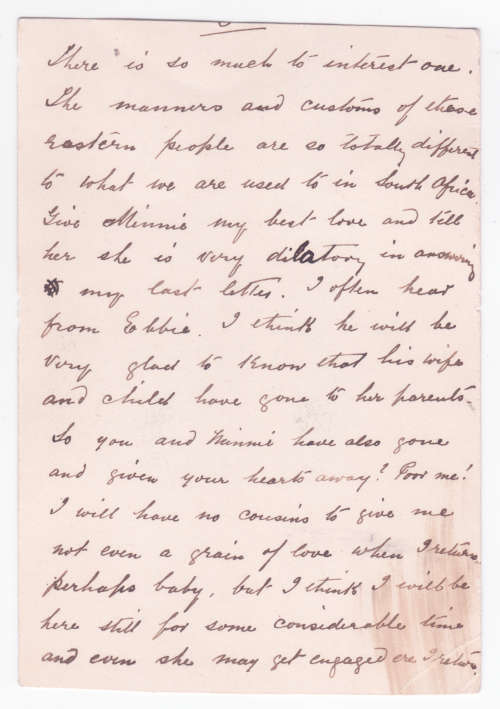 There is so much to interest one.
The manners and customs of these
Eastern people are so totally different
to what we are used to in South Africa.
Give Minnie my best love and tell
her she is very dilatory in answering
my last letter. I often hear
from Ebbie. I think he will be
very glad to know that his wife
and child have gone to her parents.
So you and Winnie have also gone
and given your hearts away? Poor me!
I will have no cousins to give me
not even a grain of love when I return.
perhaps baby, but I think I will be
here still for some considerable time
and even she may get engaged ere I return.